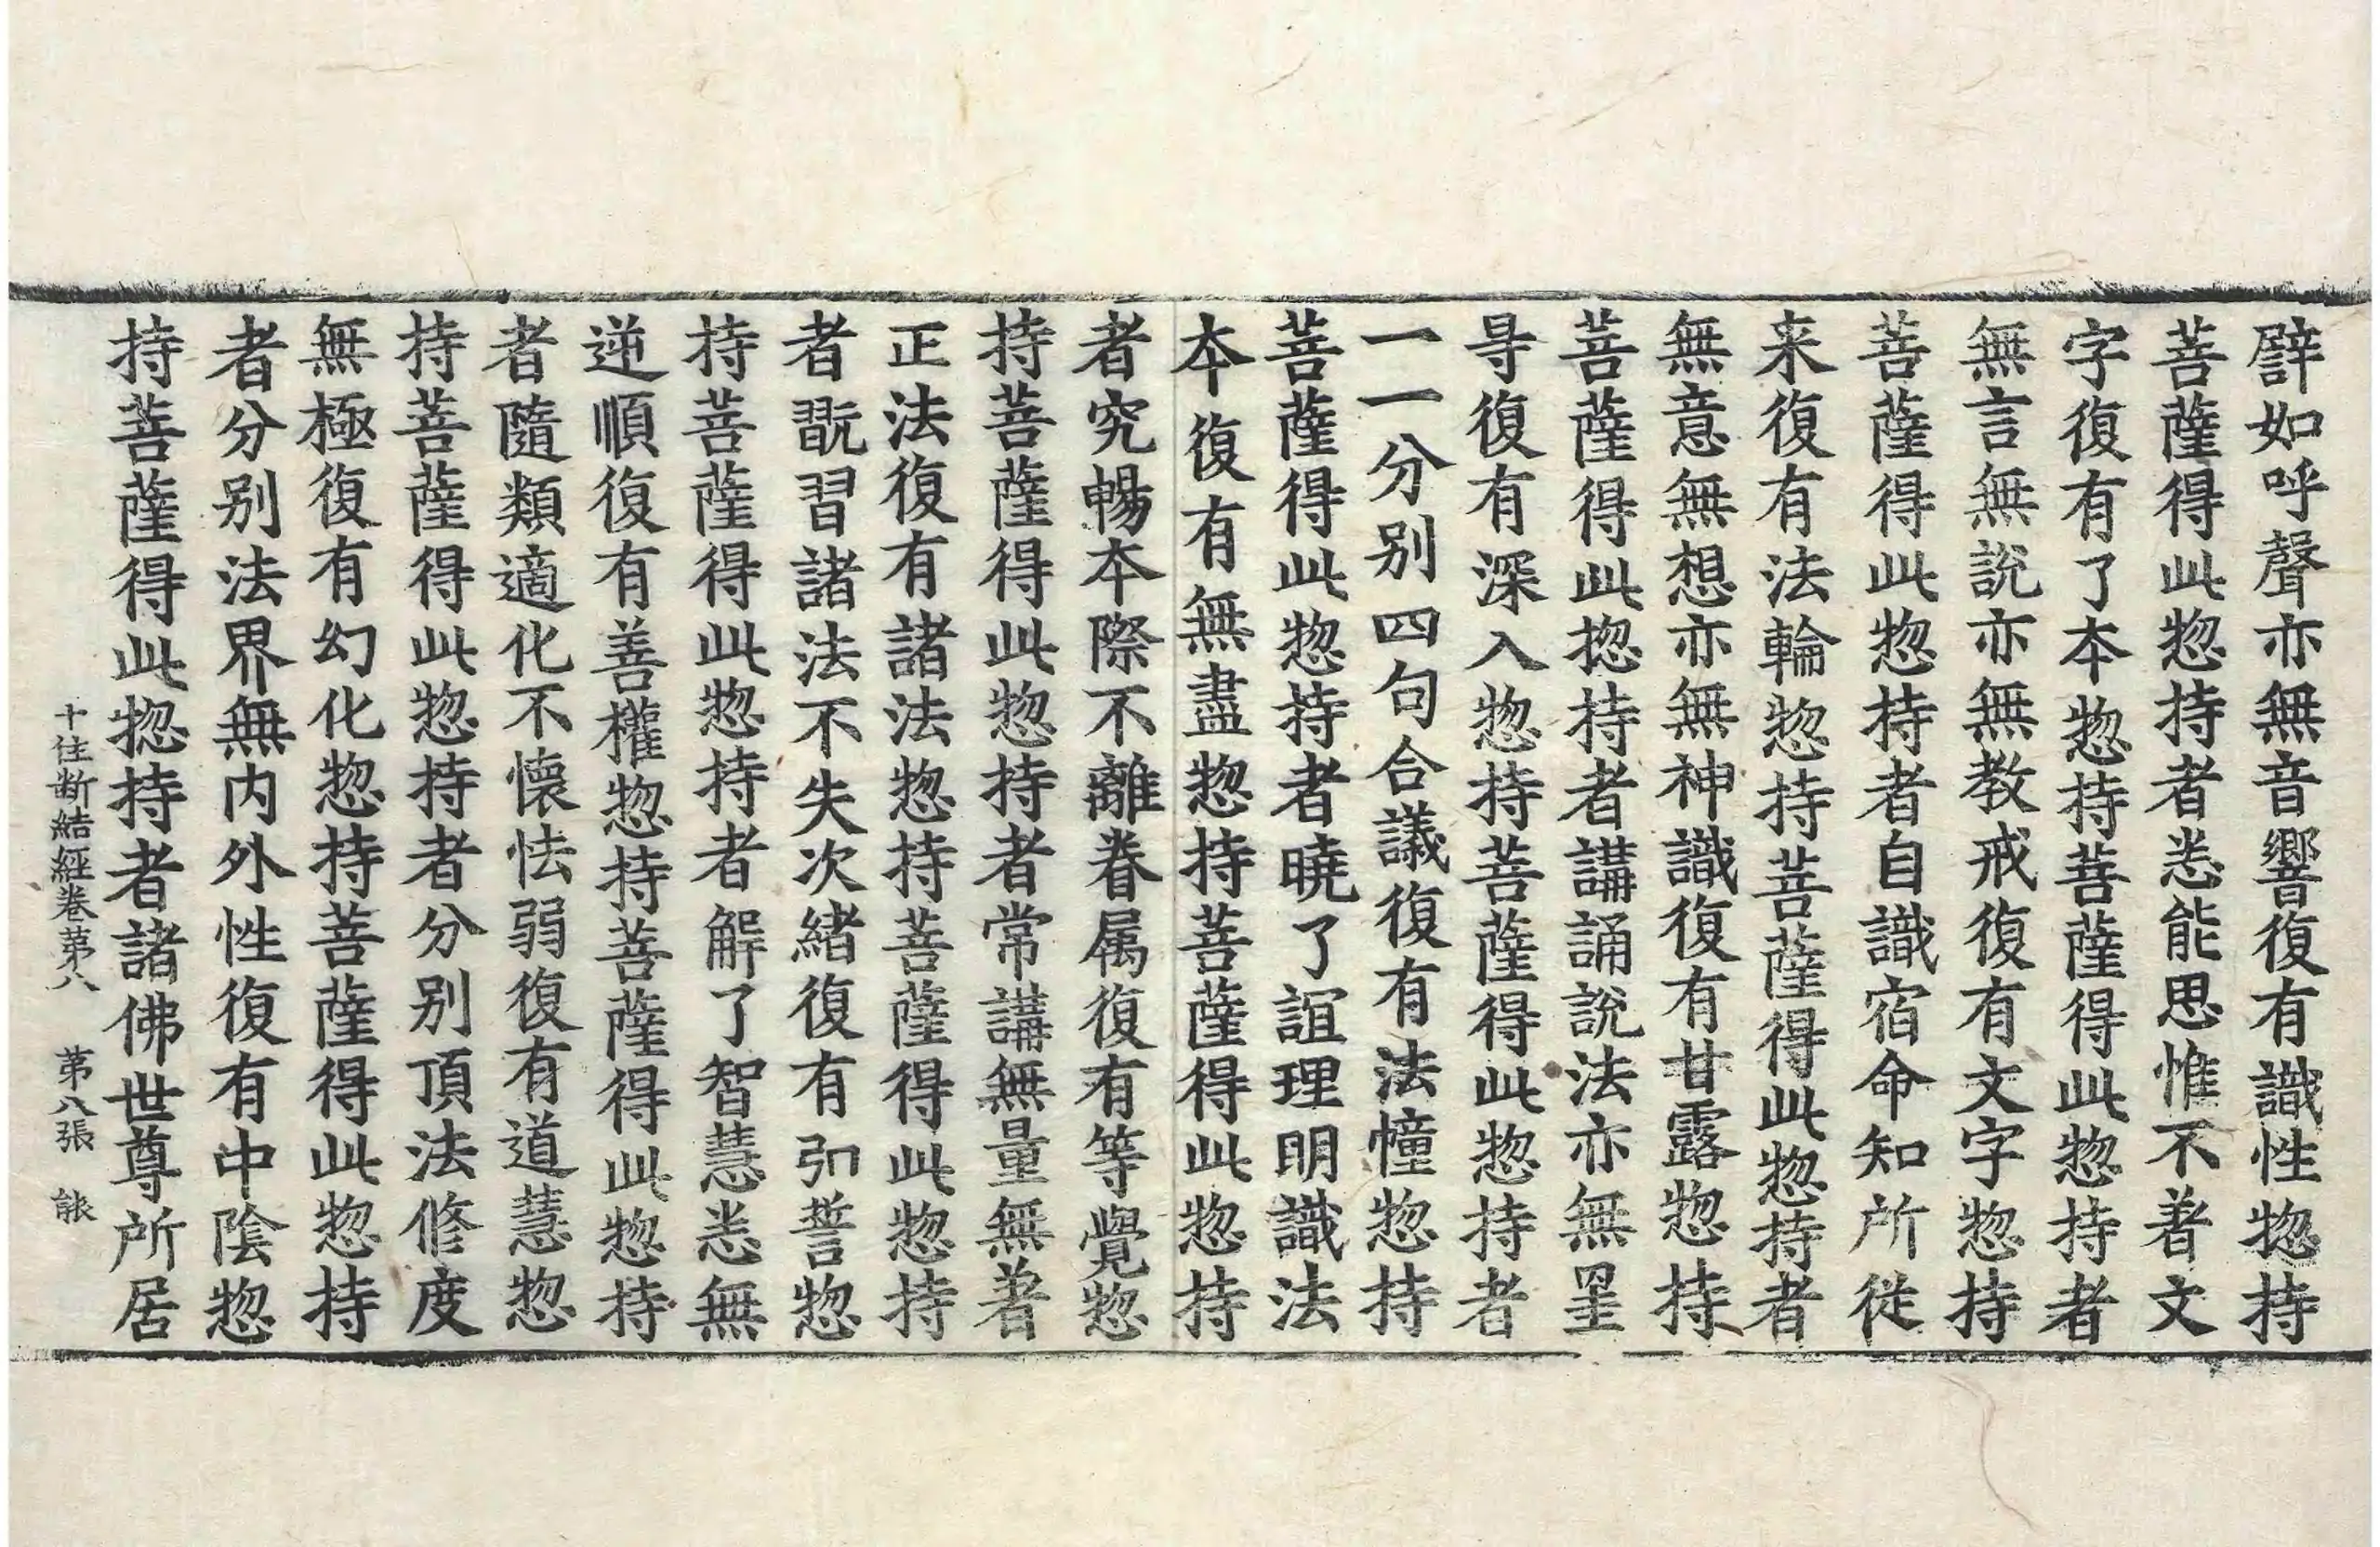 譬如呼聲亦無音響復有識性惣持
菩薩得此惣持者悉能思惟不著文
字復有了本惣持菩薩得此惣持者
無言無說亦無教戒復有文字惣持
菩薩得此惣持者自識宿命知所從
来復有法輪惣持菩薩得此惣持者
無意無想亦無神識復有甘露惣持
菩薩得此揔持者講誦說法亦無罣
㝵復有深入惣持菩薩得此惣持者
一一分别四句合議復有法幢惣持
菩薩得此惣持者曉了誼理明識法
本復有無盡惣持菩薩得此惣持
者究暢本際不離眷属復有等覺惣
持菩薩得此惣持者常講無量無著
正法復有諸法惣持菩薩得此惣持
者翫習諸法不失次緒復有弘誓惣
持菩薩得此惣持者解了智慧悉無
逆順復有善權惣持菩薩得此惣持
者隨類適化不懷怯弱復有道慧惣
持菩薩得此惣持者分别頂法修度
無極復有幻化惣持菩薩得此惣持
者分别法界無内外性復有中陰惣
持菩薩得此揔持者諸佛世尊所居
十住断結經卷苐八 苐八張